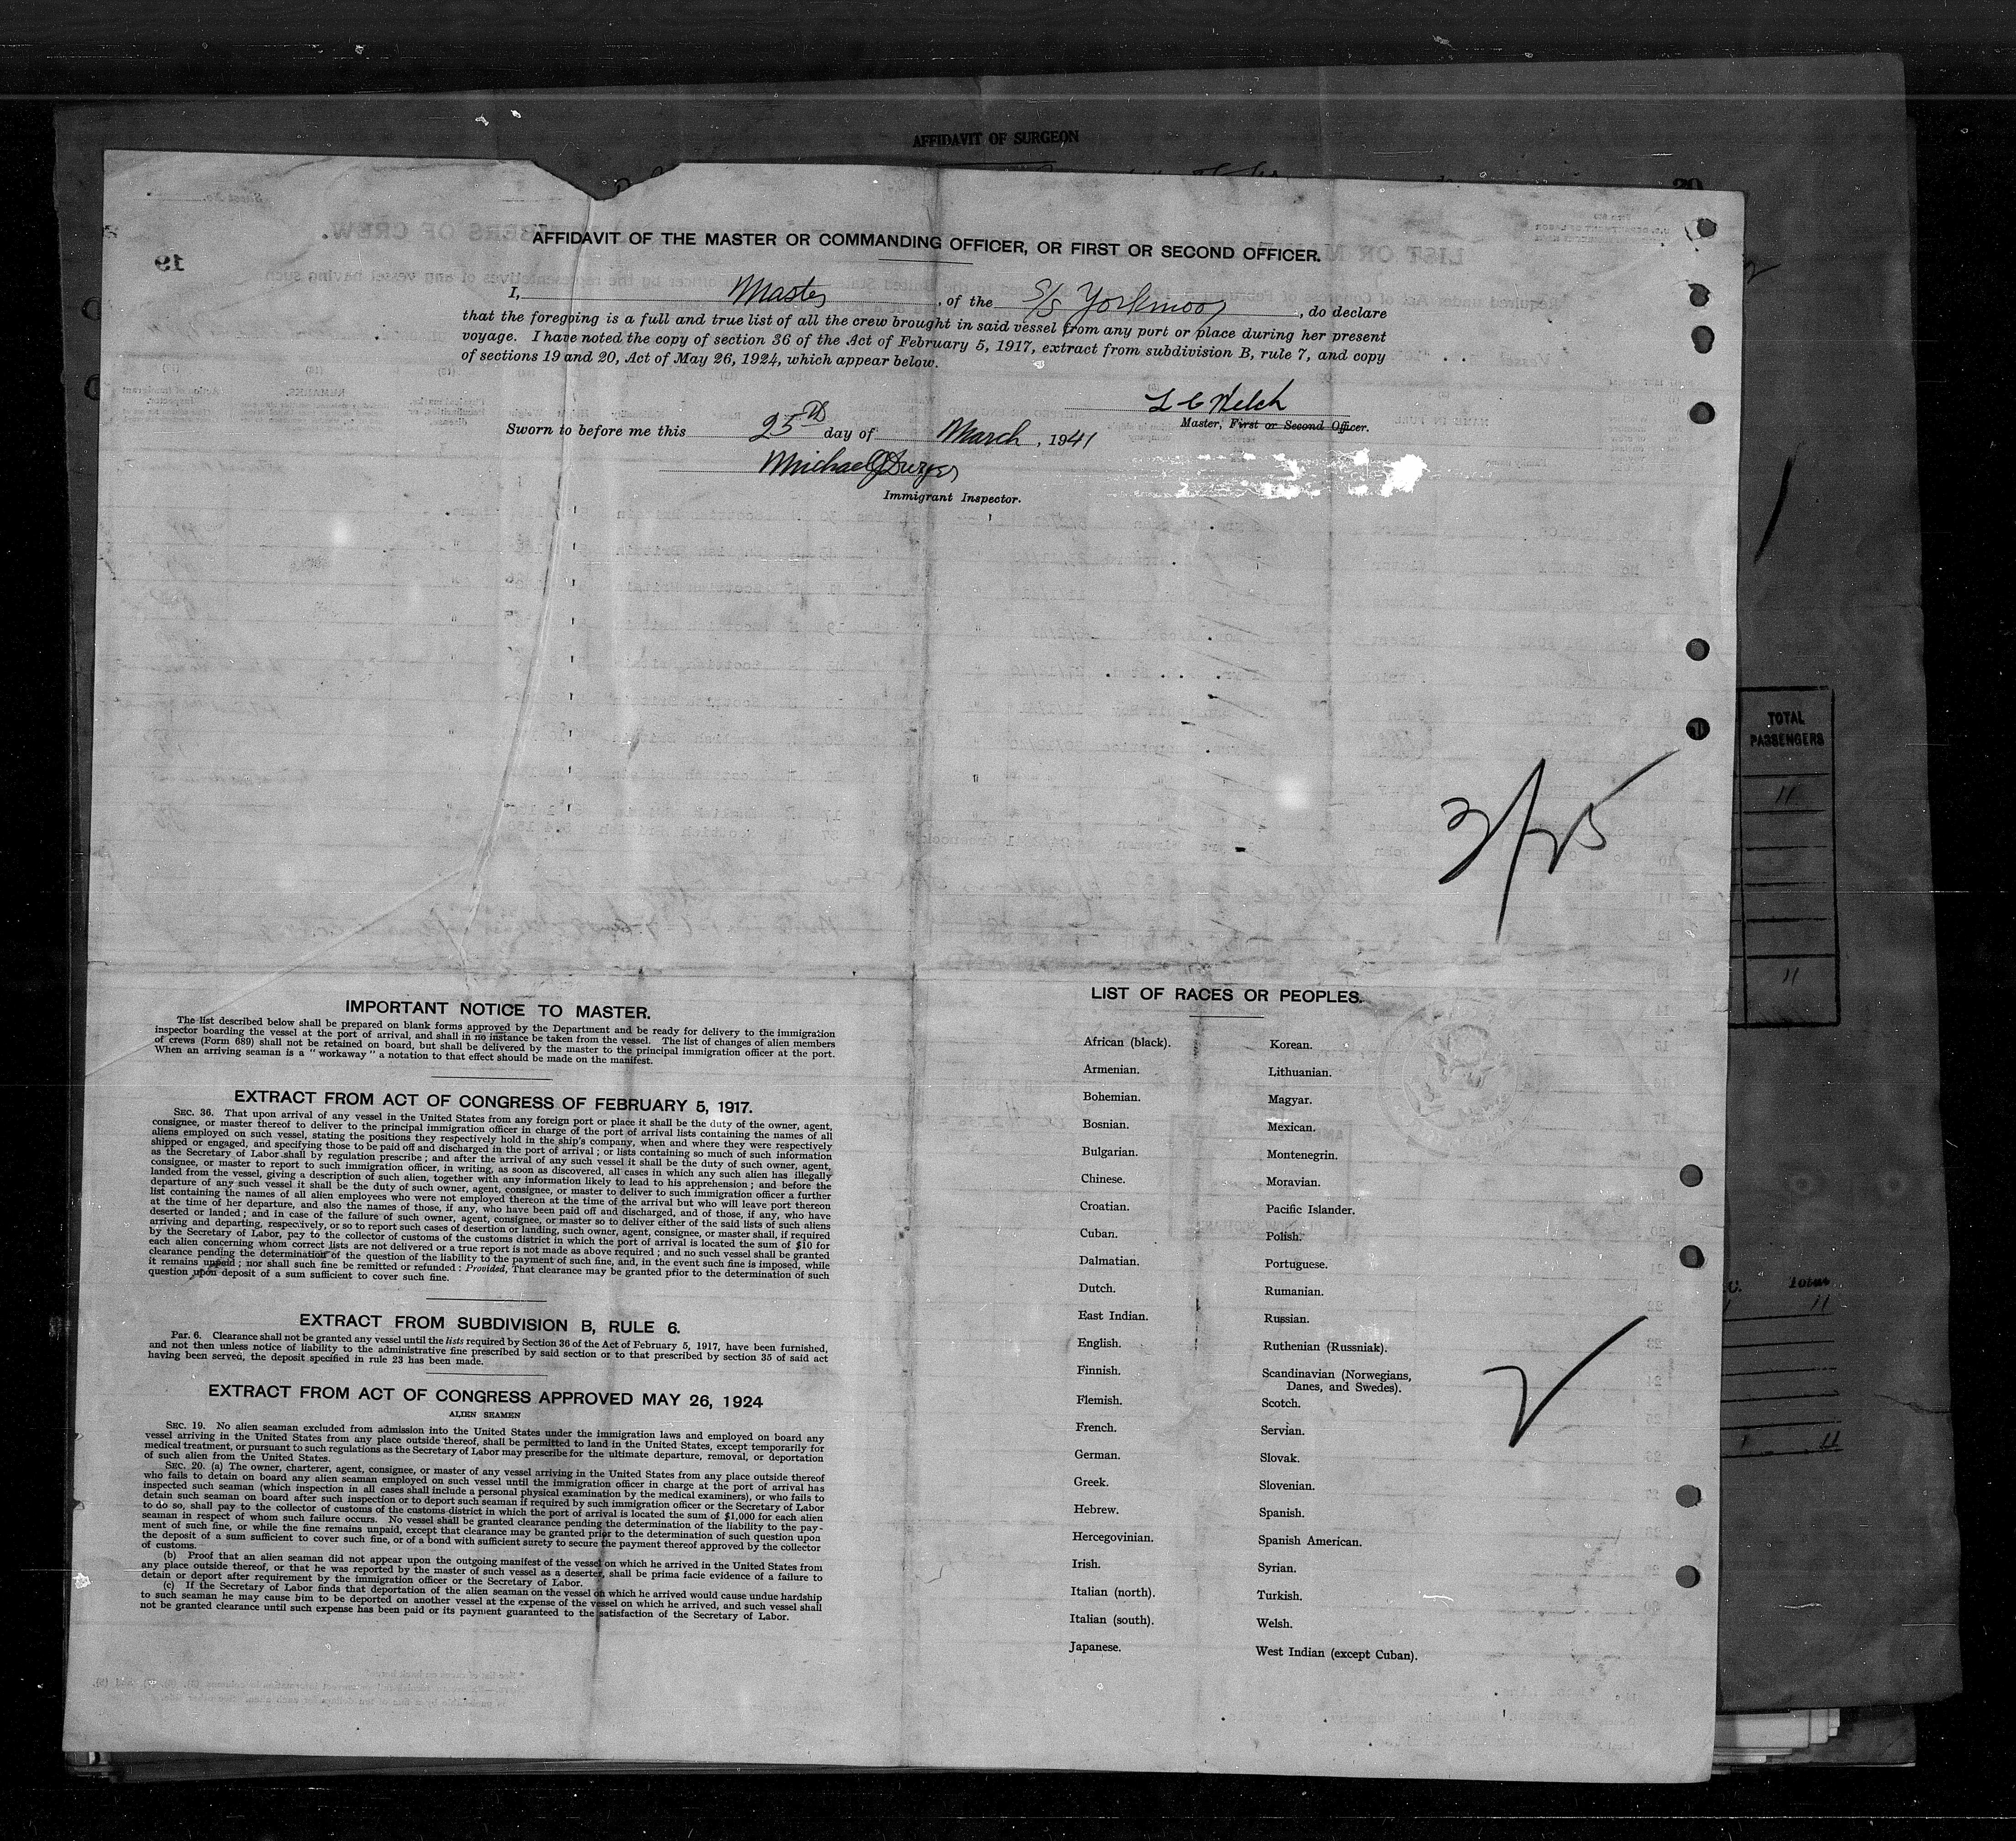 AFFIDAVIT OF SURGEON
AFFIDAVIT OF THE MASTER OR COMMANDING OFFICER, OR FIRST OR SECOND OFFICER.
I, Master, of the S/S Yorkmoor, do declare
that the foregoing is a full and true list of all the crew brought in said vessel from any port or place during her present
voyage. I have noted the copy of section 36 of the Act of February 5, 1917, extract from subdivision B, rule 7, and copy
of sections 19 and 20, Act of May 26, 1924, which appear below.
L C Welch
Master, First or Second Officer.
Sworn to before me this 25th day of March, 1941
Michael
Immigrant Inspector.
TOTAL
PASSENGERS
11
11
3/25
IMPORTANT NOTICE TO MASTER.
The list described below shall be prepared on blank forms approved by the Department and be ready for delivery to the immigration
inspector boarding the vessel at the port of arrival, and shall in no instance be taken from the vessel. The list of changes of alien members
of crews (Form 689) shall not be retained on board, but shall be delivered by the master to the principal immigration officer at the port.
When an arriving seaman is a " workaway " a notation to that effect should be made on the manifest.
EXTRACT FROM ACT OF CONGRESS OF FEBRUARY 5, 1917.
SEC. 36. That upon arrival of any vessel in the United States from any foreign port or place it shall be the duty of the owner, agent,
consignee, or master thereof to deliver to the principal immigration officer in charge of the port of arrival lists containing the names of all
aliens employed on such vessel, stating the positions they respectively hold in the ship's company, when and where they were respectively
shipped or engaged, and specifying those to be paid off and discharged in the port of arrival ; or lists containing so much of such information
as the Secretary of Labor shall by regulation prescribe ; and after the arrival of any such vessel it shall be the duty of such owner, agent,
consignee, or master to report to such immigration officer, in writing, as soon as discovered, all cases in which any such alien has illegally
landed from the vessel, giving a description of such alien, together with any information likely to lead to his apprehension ; and before the
departure of any such vessel it shall be the duty of such owner, agent, consignee, or master to deliver to such immigration officer a further
list containing the names of all alien employees who were not employed thereon at the time of the arrival but who will leave port thereon
at the time of her departure, and also the names of those, if any, who have been paid off and discharged, and of those, if any, who have
deserted or landed ; and in case of the failure of such owner, agent, consignee, or master so to deliver either of the said lists of such aliens
arriving and departing, respectively, or so to report such cases of desertion or landing, such owner, agent, consignee, or master shall, if required
by the Secretary of Labor, pay to the collector of customs of the customs district in which the port of arrival is located the sum of $10 for
each alien concerning whom correct lists are not delivered or a true report is not made as above required ; and no such vessel shall be granted
clearance pending the determination of the question of the liability to the payment of such fine, and, in the event such fine is imposed, while
it remains unpaid ; nor shall such fine be remitted or refunded : Provided, That clearance may be granted prior to the determination of such
question upon deposit of a sum sufficient to cover such fine.
EXTRACT FROM SUBDIVISION B, RULE 6.
Par. 6. Clearance shall not be granted any vessel until the lists required by Section 36 of the Act of February 5, 1917, have been furnished,
and not then unless notice of liability to the administrative fine prescribed by said section or to that prescribed by section 35 of said act
having been served, the deposit specified in rule 23 has been made.
EXTRACT FROM ACT OF CONGRESS APPROVED MAY 26, 1924
ALIEN SEAMEN
SEC. 19. No alien seaman excluded from admission into the United States under the immigration laws and employed on board any
vessel arriving in the United States from any place outside thereof, shall be permitted to land in the United States, except temporarily for
medical treatment, or pursuant to such regulations as the Secretary of Labor may prescribe for the ultimate departure, removal, or deportation
of such alien from the United States.
SEC. 20. (a) The owner, charterer, agent, consignee, or master of any vessel arriving in the United States from any place outside thereof
who fails to detain on board any alien seaman employed on such vessel until the immigration officer in charge at the port of arrival has
inspected such seaman (which inspection in all cases shall include a personal physical examination by the medical examiners), or who fails to
detain such seaman on board after such inspection or to deport such seaman if required by such immigration officer or the Secretary of Labor
to do so, shall pay to the collector of customs of the customs district in which the port of arrival is located the sum of $1,000 for each alien
seaman in respect of whom such failure occurs. No vessel shall be granted clearance pending the determination of the liability to the pay-
ment of such fine, or while the fine remains unpaid, except that clearance may be granted prior to the determination of such question upon
the deposit of a sum sufficient to cover such fine, or of a bond with sufficient surety to secure the payment thereof approved by the collector
of customs.
(b) Proof that an alien seaman did not appear upon the outgoing manifest of the vessel on which he arrived in the United States from
any place outside thereof, or that he was reported by the master of such vessel as a deserter, shall be prima facie evidence of a failure to
detain or deport after requirement by the immigration officer or the Secretary of Labor.
(c) If the Secretary of Labor finds that deportation of the alien seaman on the vessel on which he arrived would cause undue hardship
to such seaman he may cause him to be deported on another vessel at the expense of the vessel on which he arrived, and such vessel shall
not be granted clearance until such expense has been paid or its payment guaranteed to the satisfaction of the Secretary of Labor.
LIST OF RACES OR PEOPLES.
African (black).
Armenian.
Bohemian.
Bosnian.
Bulgarian.
Chinese.
Croatian.
Cuban.
Dalmatian.
Dutch.
East Indian.
English.
Finnish.
Flemish.
French.
German.
Greek.
Hebrew.
Hercegovinian.
Irish.
Italian (north).
Italian (south).
Japanese.
Korean.
Lithuanian.
Magyar.
Mexican.
Montenegrin.
Moravian.
Pacific Islander.
Polish.
Portuguese.
Rumanian.
Russian.
Ruthenian (Russniak).
Scandinavian (Norwegians,
Danes, and Swedes).
Scotch.
Servian.
Slovak.
Slovenian.
Spanish.
Spanish American.
Syrian.
Turkish.
Welsh.
West Indian (except Cuban).
Total
11
11